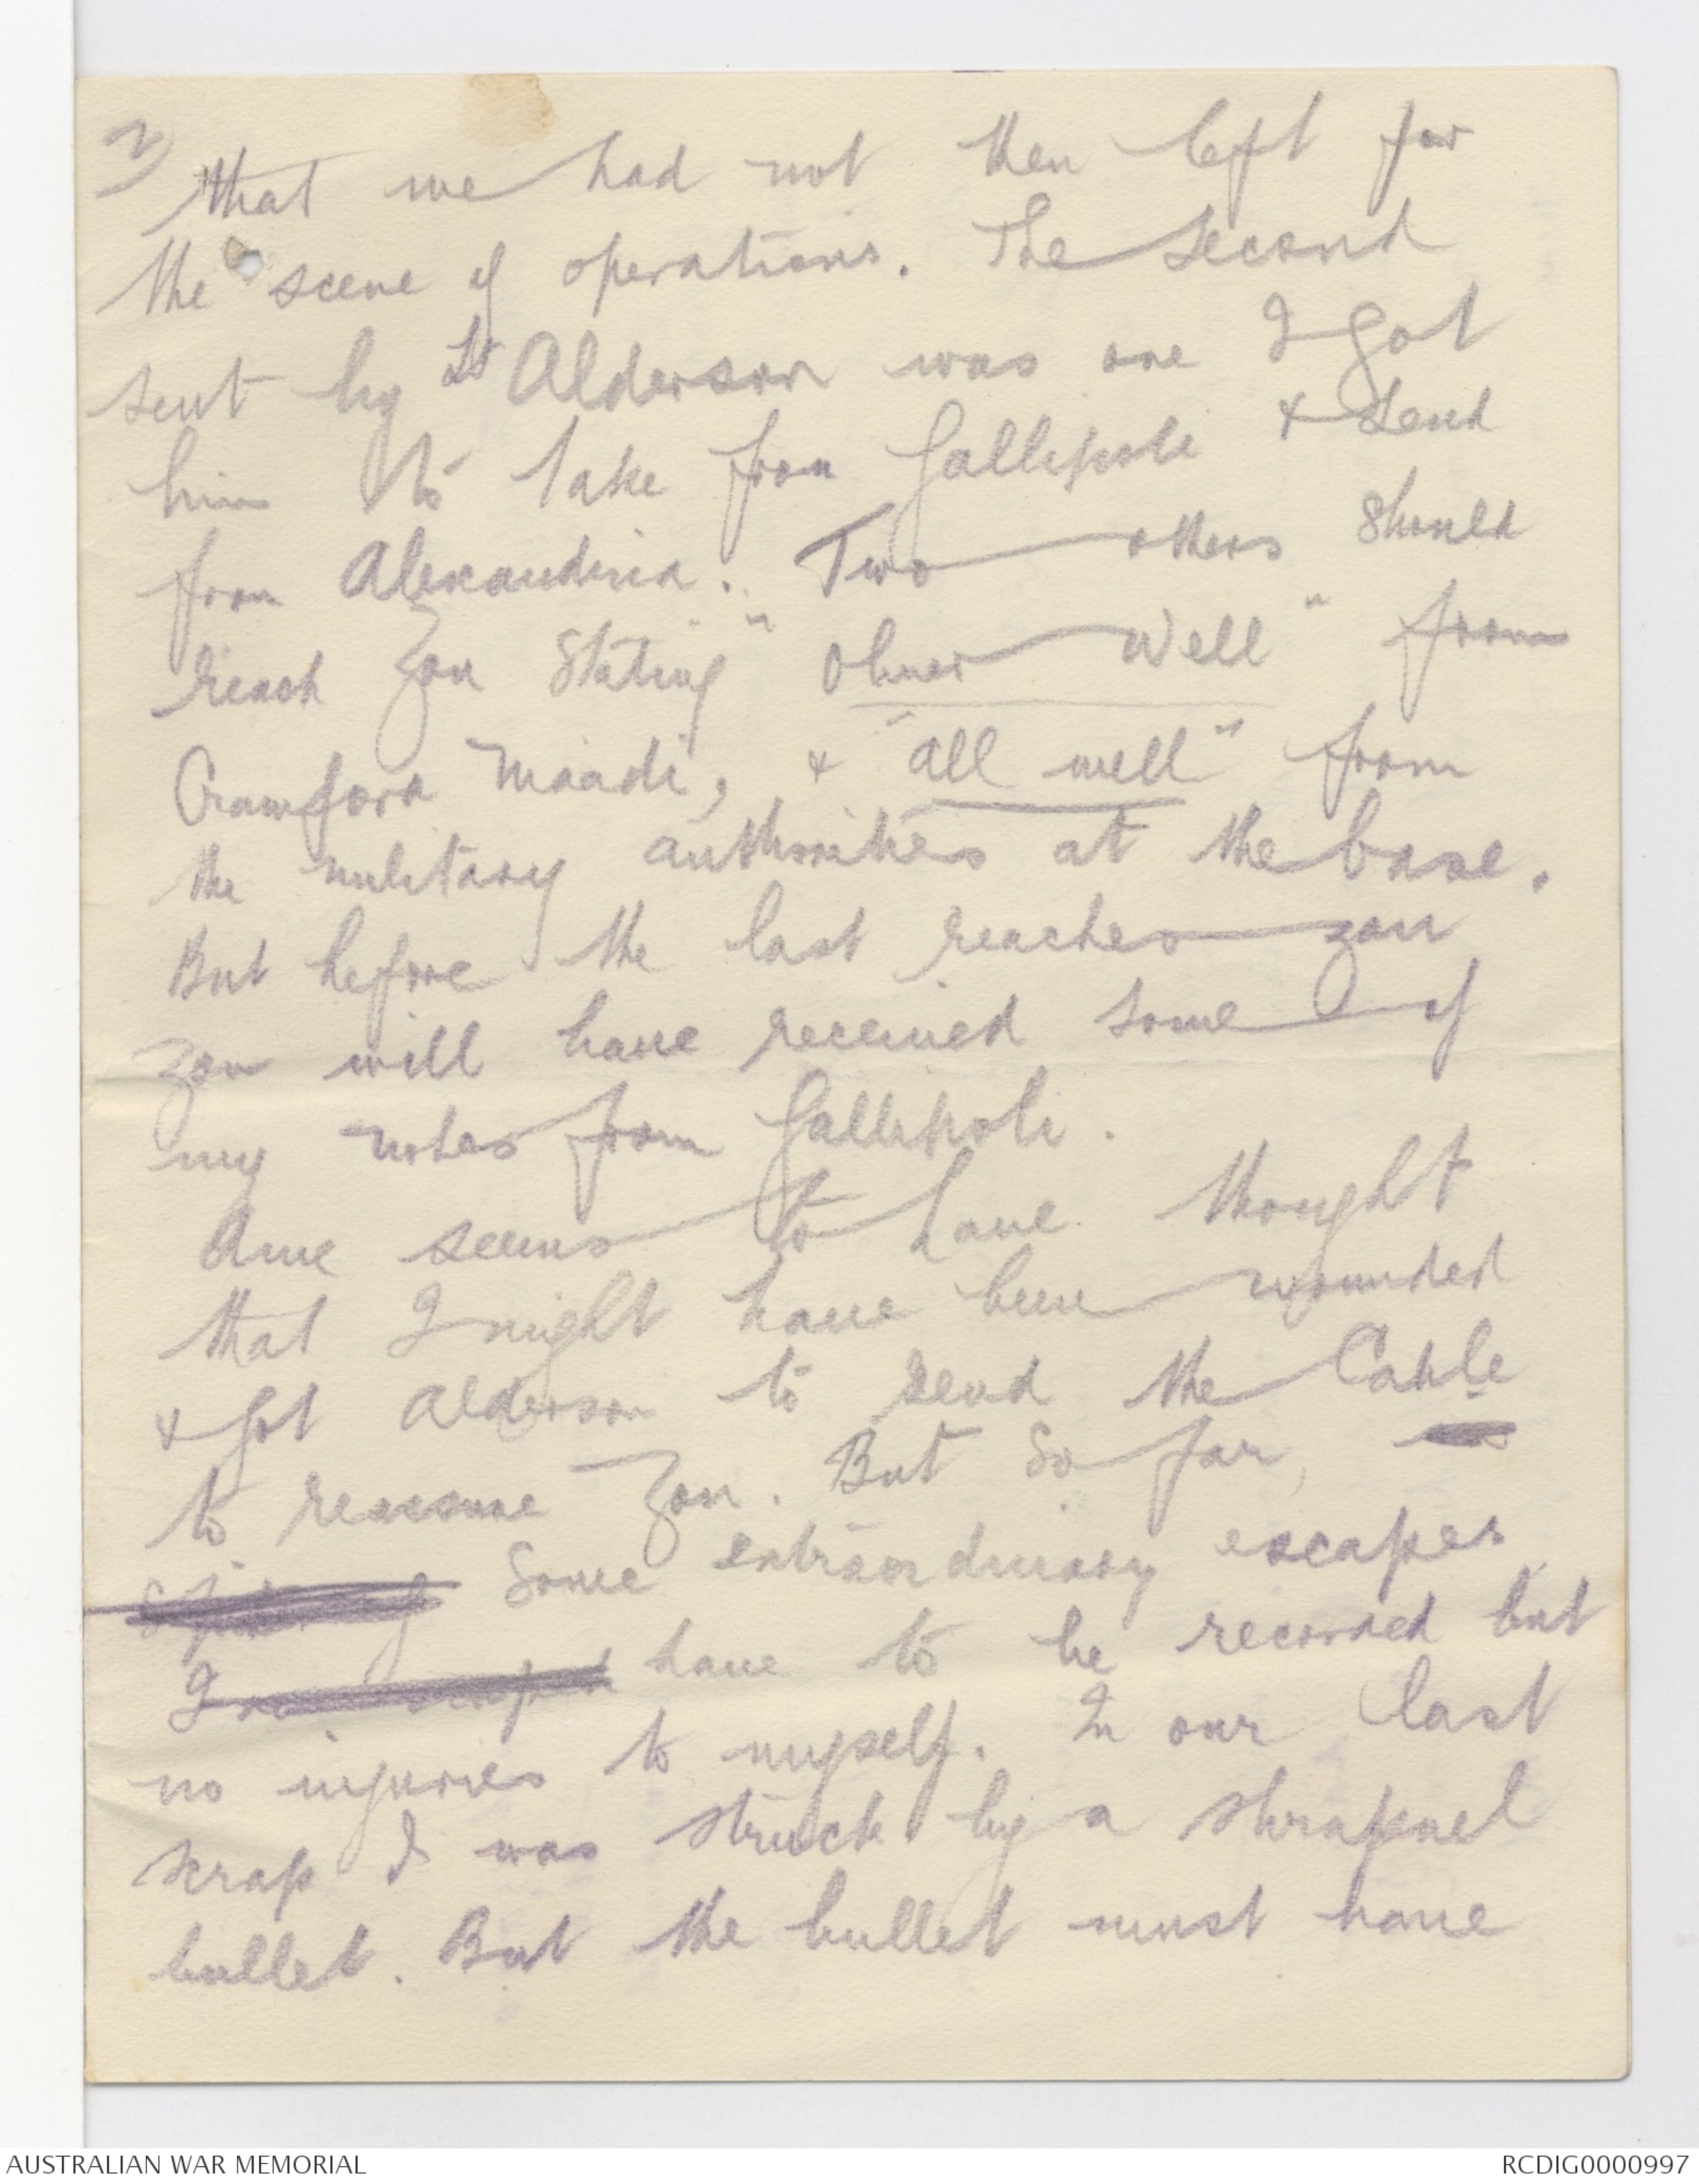 3)
that we had not then left for
the scene of operations. The second
sent by Lt Alderson was one I got
him to take from Gallipoli & send
from Alexandria. Two others should
reach you stating "Oliver Well" from
Crawford Maadi, & "all well" from
the military authorities at the base.
But before the last reaches you
you will have received some of
my notes from Gallipoli.
Ame seems to have thought
that I might have been wounded
& got Alderson to send the Cable
to reassure you. But so far,
some extraordinary escapes
I have to be recorded but
no injuries to myself. In our last
scrap I was struck by a shrapnel
bullet. But the bullet must have
AUSTRALIAN WAR MEMORIAL
RCDIG0000997